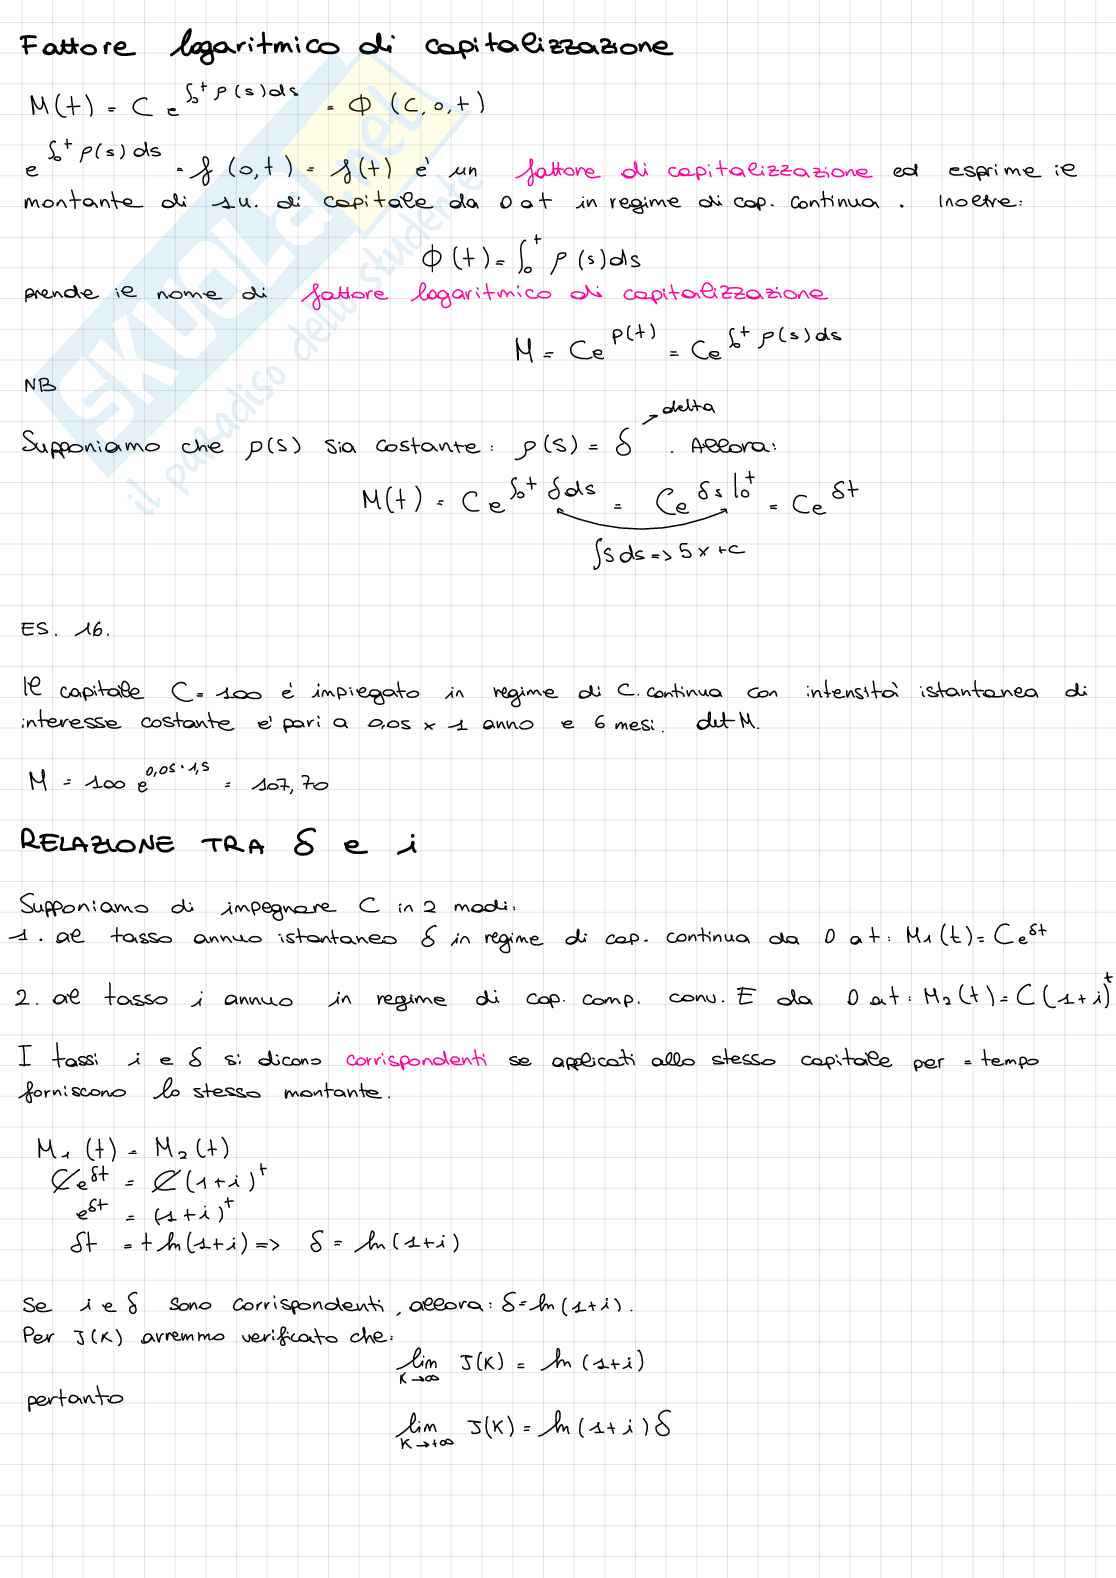 Fattore logaritmico di capitalizzazione
M(t) = C e^{∫₀ᵗ ρ(s)ds} = Φ (C,0,t)
e^{∫₀ᵗ ρ(s)ds} = f (0,t) = f(t) è un fattore di capitalizzazione ed esprime il
montante di 1 u. di capitale da 0 a t in regime di cap. continua. Inoltre:
Φ(t) = ∫₀ᵗ ρ(s)ds
prende il nome di fattore logaritmico di capitalizzazione
M = Ce^{ρ(t)} = Ce^{∫₀ᵗ ρ(s)ds}
NB
delta
Supponiamo che ρ(s) sia costante: ρ(s) = δ. Allora:
M(t) = Ce^{∫₀ᵗ δds} = Ce^{δs|₀ᵗ} = Ce^{δt}
∫5ds => 5x+c
ES. 16.
Il capitale C=100 è impiegato in regime di C. continua con intensità istantanea di
interesse costante e' pari a 0,05 x 1 anno e 6 mesi. det M.
M = 100 e^{0,05·1,5} = 107,70
RELAZIONE TRA δ e i
Supponiamo di impegnare C in 2 modi.
1. al tasso annuo istantaneo δ in regime di cap. continua da 0 a t: M₁(t)=Ce^{δt}
2. al tasso i annuo in regime di cap. comp. conv. E da 0 a t: M₂(t)=C(1+i)^t
I tassi i e δ si dicono corrispondenti se applicati allo stesso capitale per = tempo
forniscono lo stesso montante.
M₁(t) = M₂(t)
Ce^{δt} = C(1+i)^t
e^{δt} = (1+i)^t
δt = t ln(1+i) => δ = ln(1+i)
Se i e δ sono corrispondenti, allora: δ=ln(1+i).
Per J(K) avremmo verificato che:
lim K→∞ J(K) = ln(1+i)
pertanto
lim K→+∞ J(K) = ln(1+i) δ
SKUOLA.net
il paradiso dello studente